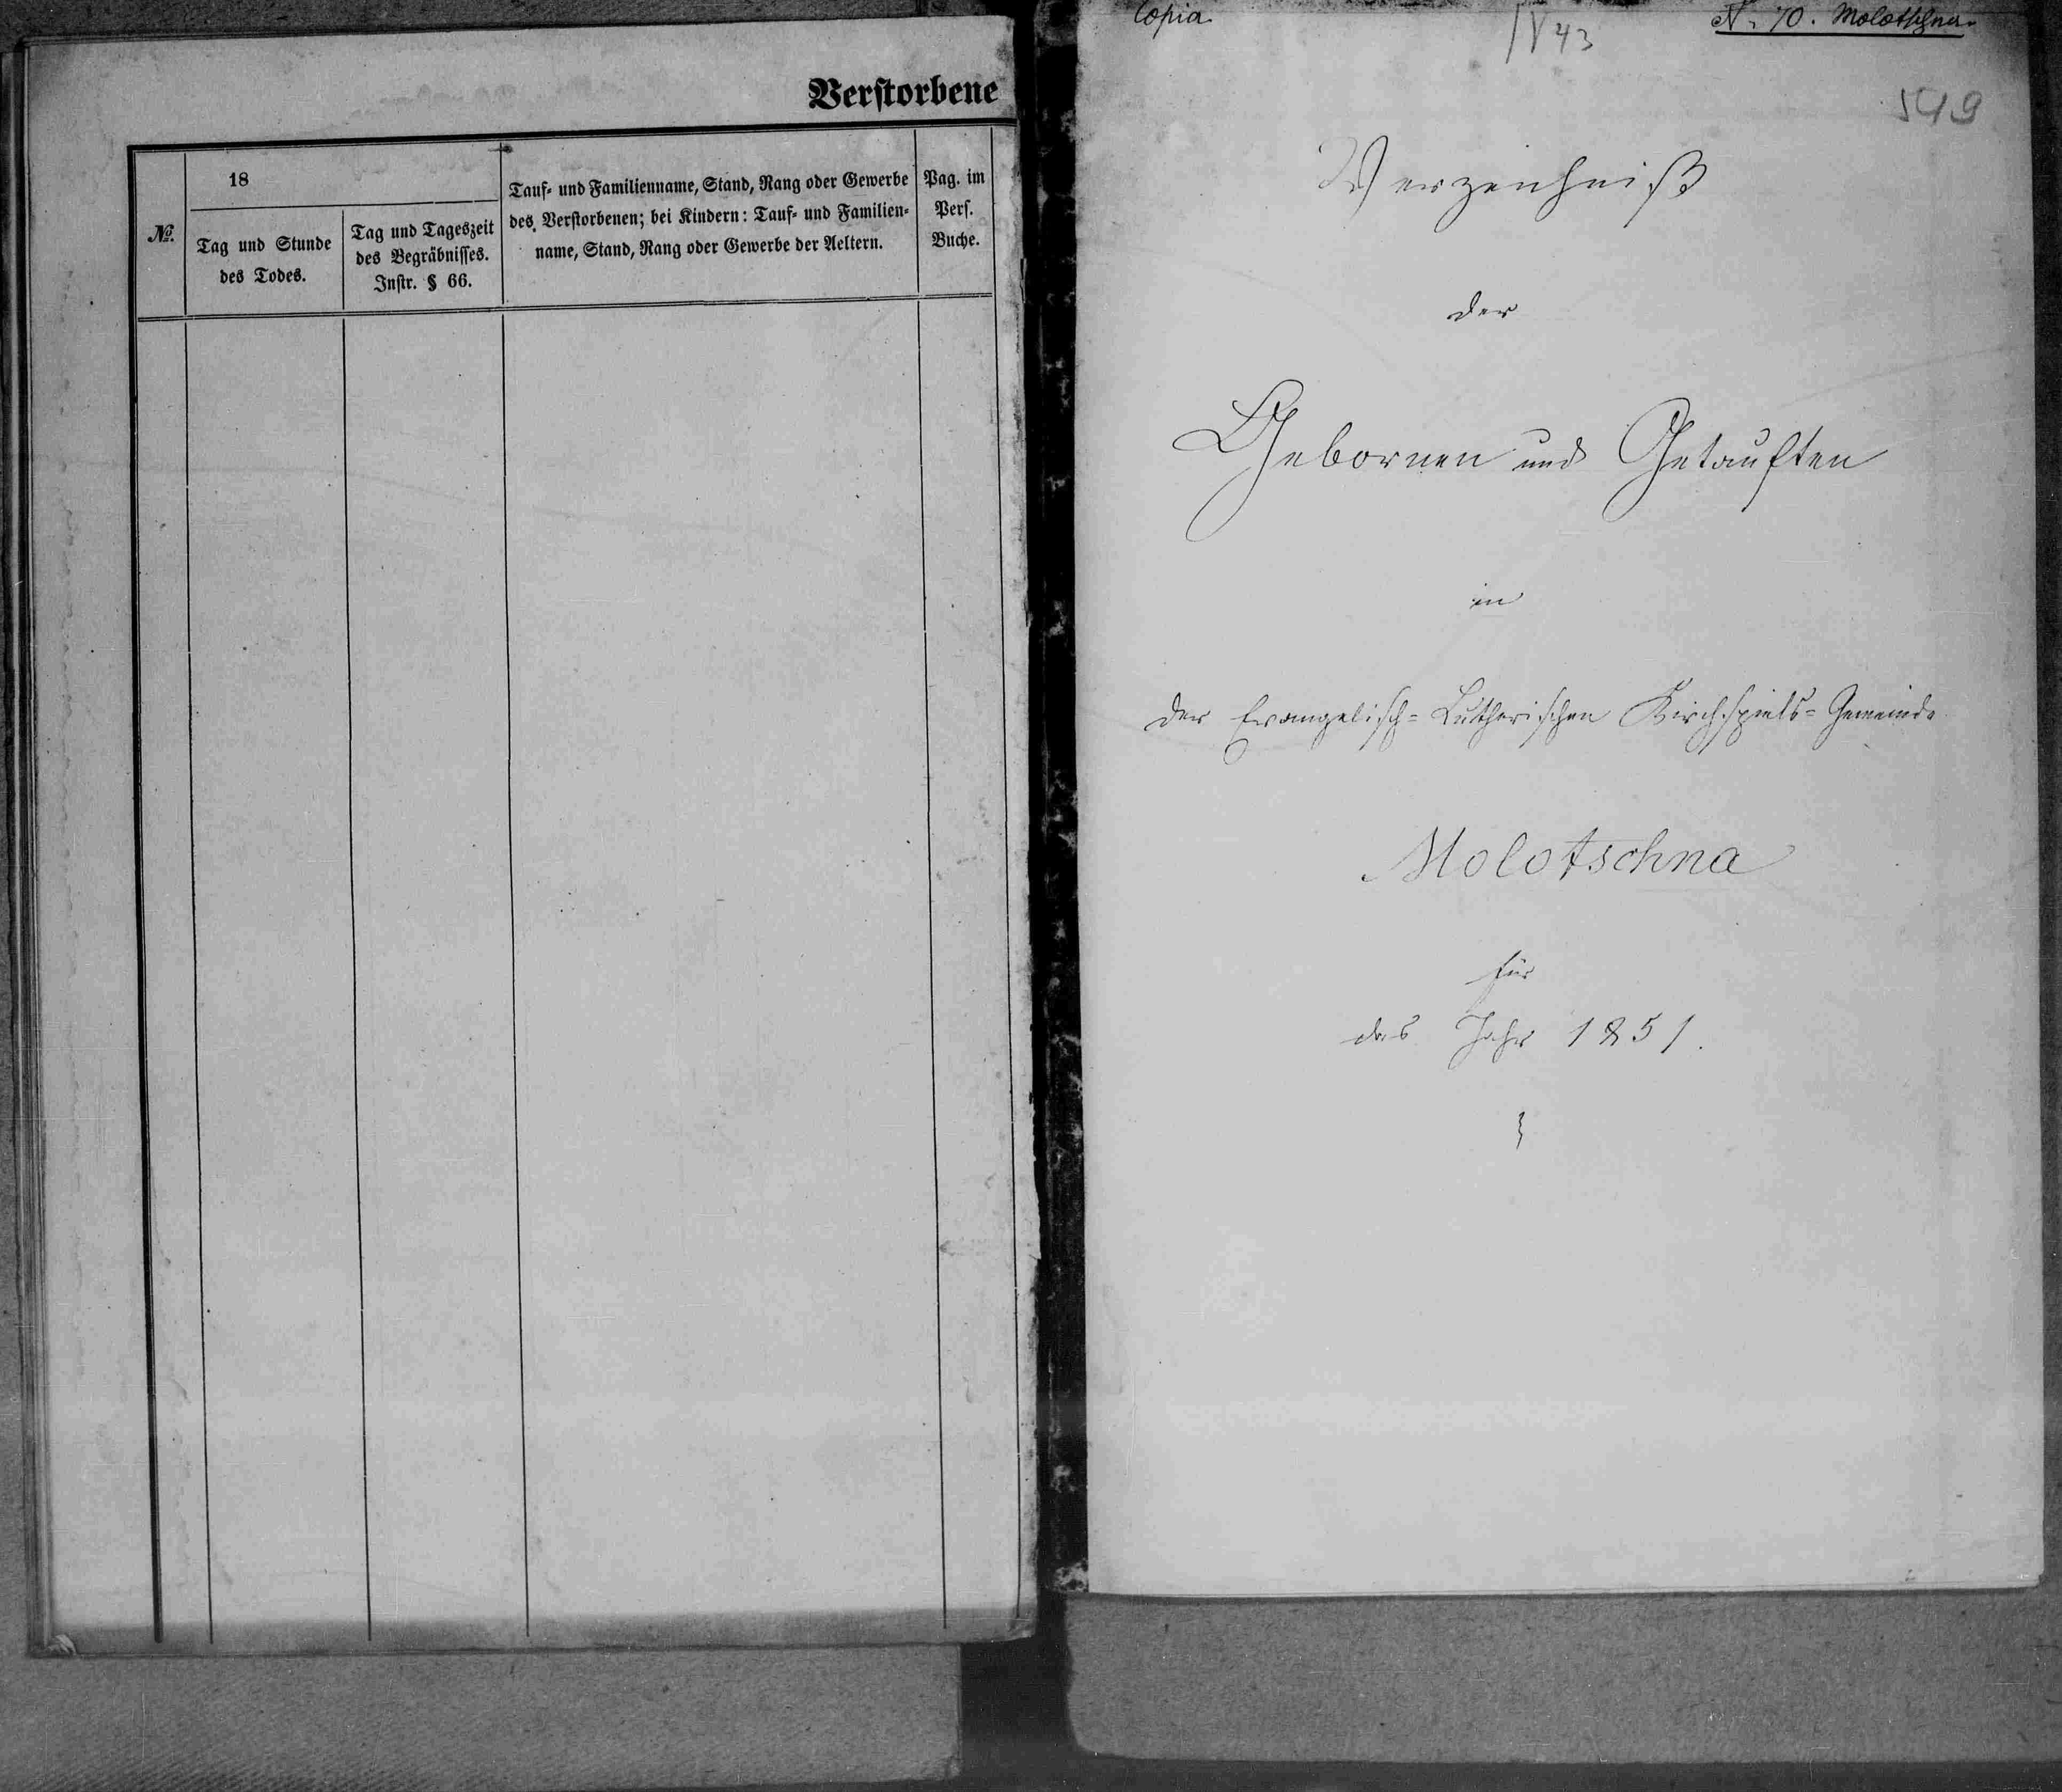 Verstorbene
No.
18
Tag und Stunde
des Todes.
Tag und Tageszeit
des Begräbnisses.
Instr. § 66.
Tauf- und Familienname, Stand, Rang oder Gewerbe
des Verstorbenen; bei Kindern: Tauf- und Familien-
name, Stand, Rang oder Gewerbe der Aeltern.
Pag. im
Pers.
Buche.
Copia.
IV 43
N. 70. Molotschna.
549
Verzeichniß
der
Gebornen und Getauften
in
der Evangelisch-Lutherischen Kirchspiels-Gemeinde
Molotschna
für
das Jahr 1851.